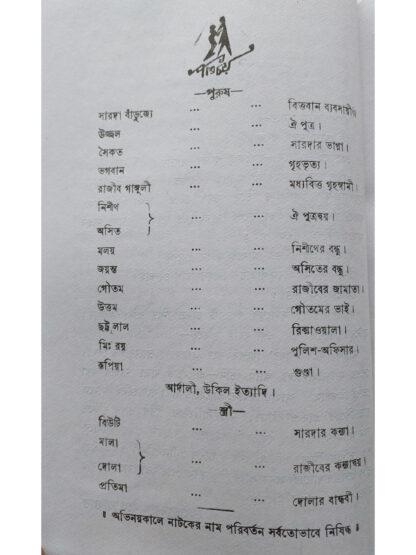 পরিচয়
—পুরুষ—
সারদা বাঁড়ুজ্যে ... ... বিত্তবান ব্যবসায়ী।
উজ্জ্বল ... ... ঐ পুত্র।
সৈকত ... ... সারদার ভাগ্না।
ভগবান ... ... গৃহভৃত্য।
রাজীব গাঙ্গুলী ... ... মধ্যবিত্ত গৃহস্বামী।
নিশীথ
অসিত } ... ... ঐ পুত্রদ্বয়।
মলয় ... ... নিশীথের বন্ধু।
জয়ন্ত ... ... অসিতের বন্ধু।
গৌতম ... ... রাজীবের জামাতা।
উত্তম ... ... গৌতমের ভাই।
ছট্টু লাল ... ... রিক্সাওয়ালা।
মিঃ রয় ... ... পুলিশ-অফিসার।
রূপিয়া ... ... গুণ্ডা।
আর্দালী, উকিল ইত্যাদি।
—স্ত্রী—
বিউটি ... ... সারদার কন্যা।
মালা
দোলা } ... ... রাজীবের কন্যাদ্বয়।
প্রতিমা ... ... দোলার বান্ধবী।
॥ অভিনয়কালে নাটকের নাম পরিবর্তন সর্বতোভাবে নিষিদ্ধ ॥